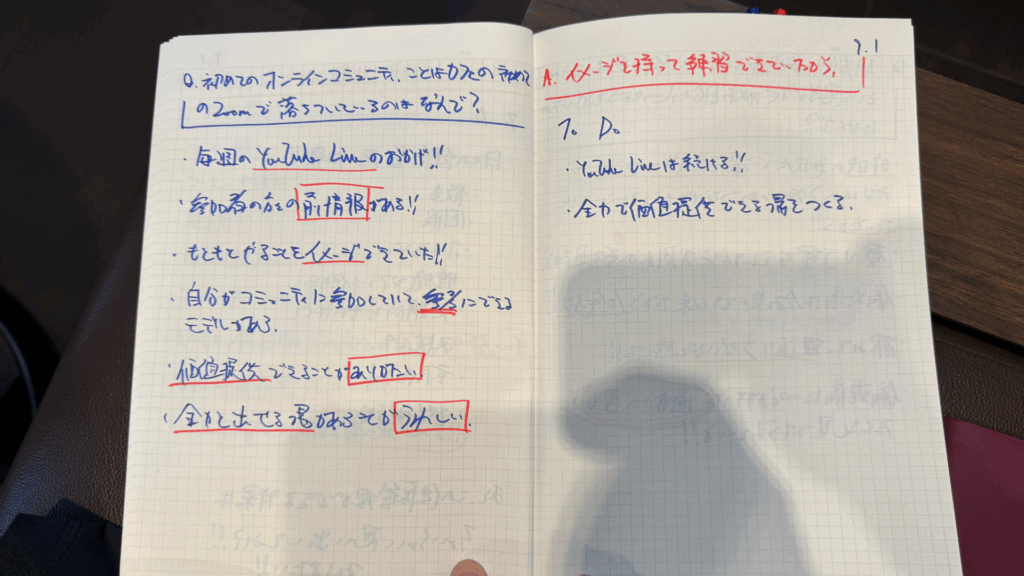 Q. 初めてのオンラインコミュニティ、ことばカフェの初めて
のZoomで落ちついているのはなんで？
・毎週のYouTube Liveのおかげ!!
・参加者の方との前情報がある!!
・もともとやることをイメージできていた!!
・自分がコミュニティに参加していて、参考にできる
モデルがある.
・価値提供できることがありがたい.
・全力を出せる場があることがうれしい.
9.1
A. イメージを持って練習できていたから.
To Do
・YouTube Liveは続ける!!
・全力で価値提供できる場をつくる.